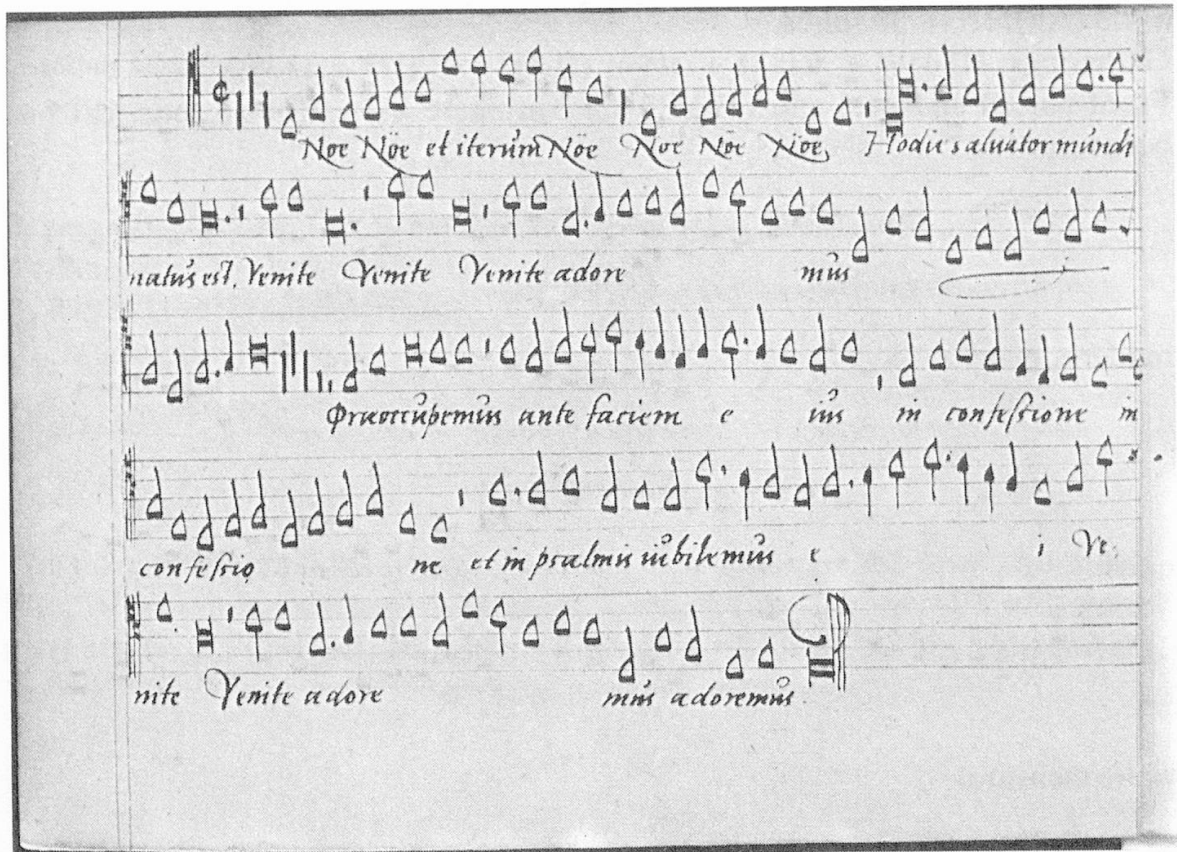 Noe Noe et iterum Noe Noe Noe Noe Hodie saluator mundi
natus est, Venite Venite Venite adore mus
Praeoccupemus ante faciem e ius in confessione in
confessio ne et in psalmis iubilemus e i Ve.
nite Venite adore mus adoremus